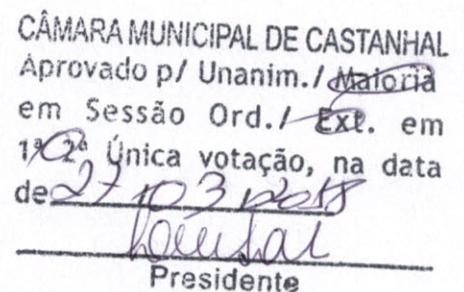 CÂMARA MUNICIPAL DE CASTANHAL
Aprovado p/ Unanim./ Maioria
em Sessão Ord./ Ext. em
1ª 2ª Única votação, na data
de 27 / 03 / 2018
Presidente